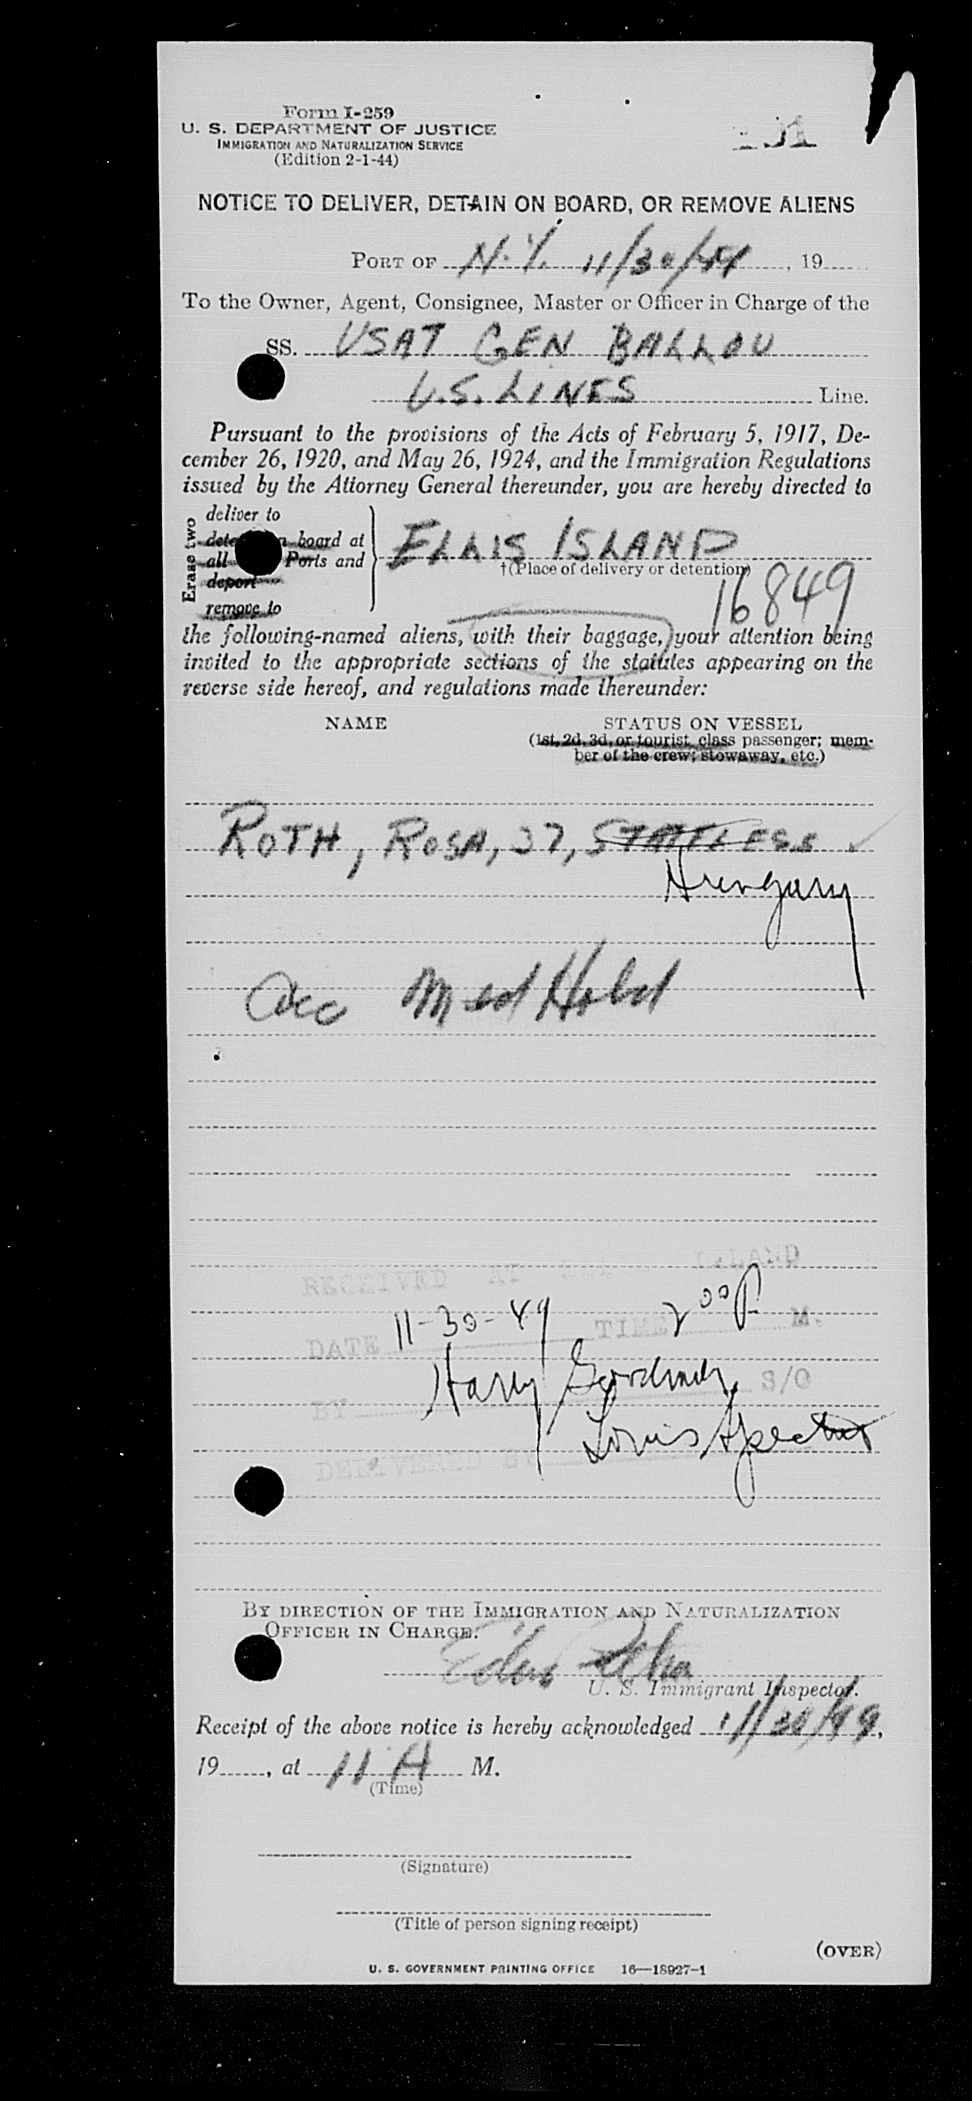 Form I-259
U. S. DEPARTMENT OF JUSTICE
IMMIGRATION AND NATURALIZATION SERVICE
(Edition 2-1-44)
NOTICE TO DELIVER, DETAIN ON BOARD, OR REMOVE ALIENS
PORT OF N.Y. 11/30/49, 19
To the Owner, Agent, Consignee, Master or Officer in Charge of the
SS. USAT GEN BALLOU
U.S. LINES Line.
Pursuant to the provisions of the Acts of February 5, 1917, De-
cember 26, 1920, and May 26, 1924, and the Immigration Regulations
issued by the Attorney General thereunder, you are hereby directed to
Erase two
deliver to
board at
all Ports and
deport
remove to
ELLIS ISLAND
†(Place of delivery or detention)
16849
the following-named aliens, with their baggage, your attention being
invited to the appropriate sections of the statutes appearing on the
reverse side hereof, and regulations made thereunder:
NAME STATUS ON VESSEL
(1st, 2d, 3d, or tourist class passenger; mem-
ber of the crew; stowaway, etc.)
ROTH, ROSA, 37, STATELESS
Hungary
Acc Med Hold
RECEIVED AT ELLIS ISLAND
DATE 11-30-49 TIME 2 00 P M.
BY Harry S/O
DELIVERED BY Louis Spector
BY DIRECTION OF THE IMMIGRATION AND NATURALIZATION
OFFICER IN CHARGE.
U. S. Immigrant Inspector.
Receipt of the above notice is hereby acknowledged 11/30/49,
19, at 11 A M.
(Time)
(Signature)
(Title of person signing receipt)
(OVER)
U. S. GOVERNMENT PRINTING OFFICE 16—18927-1